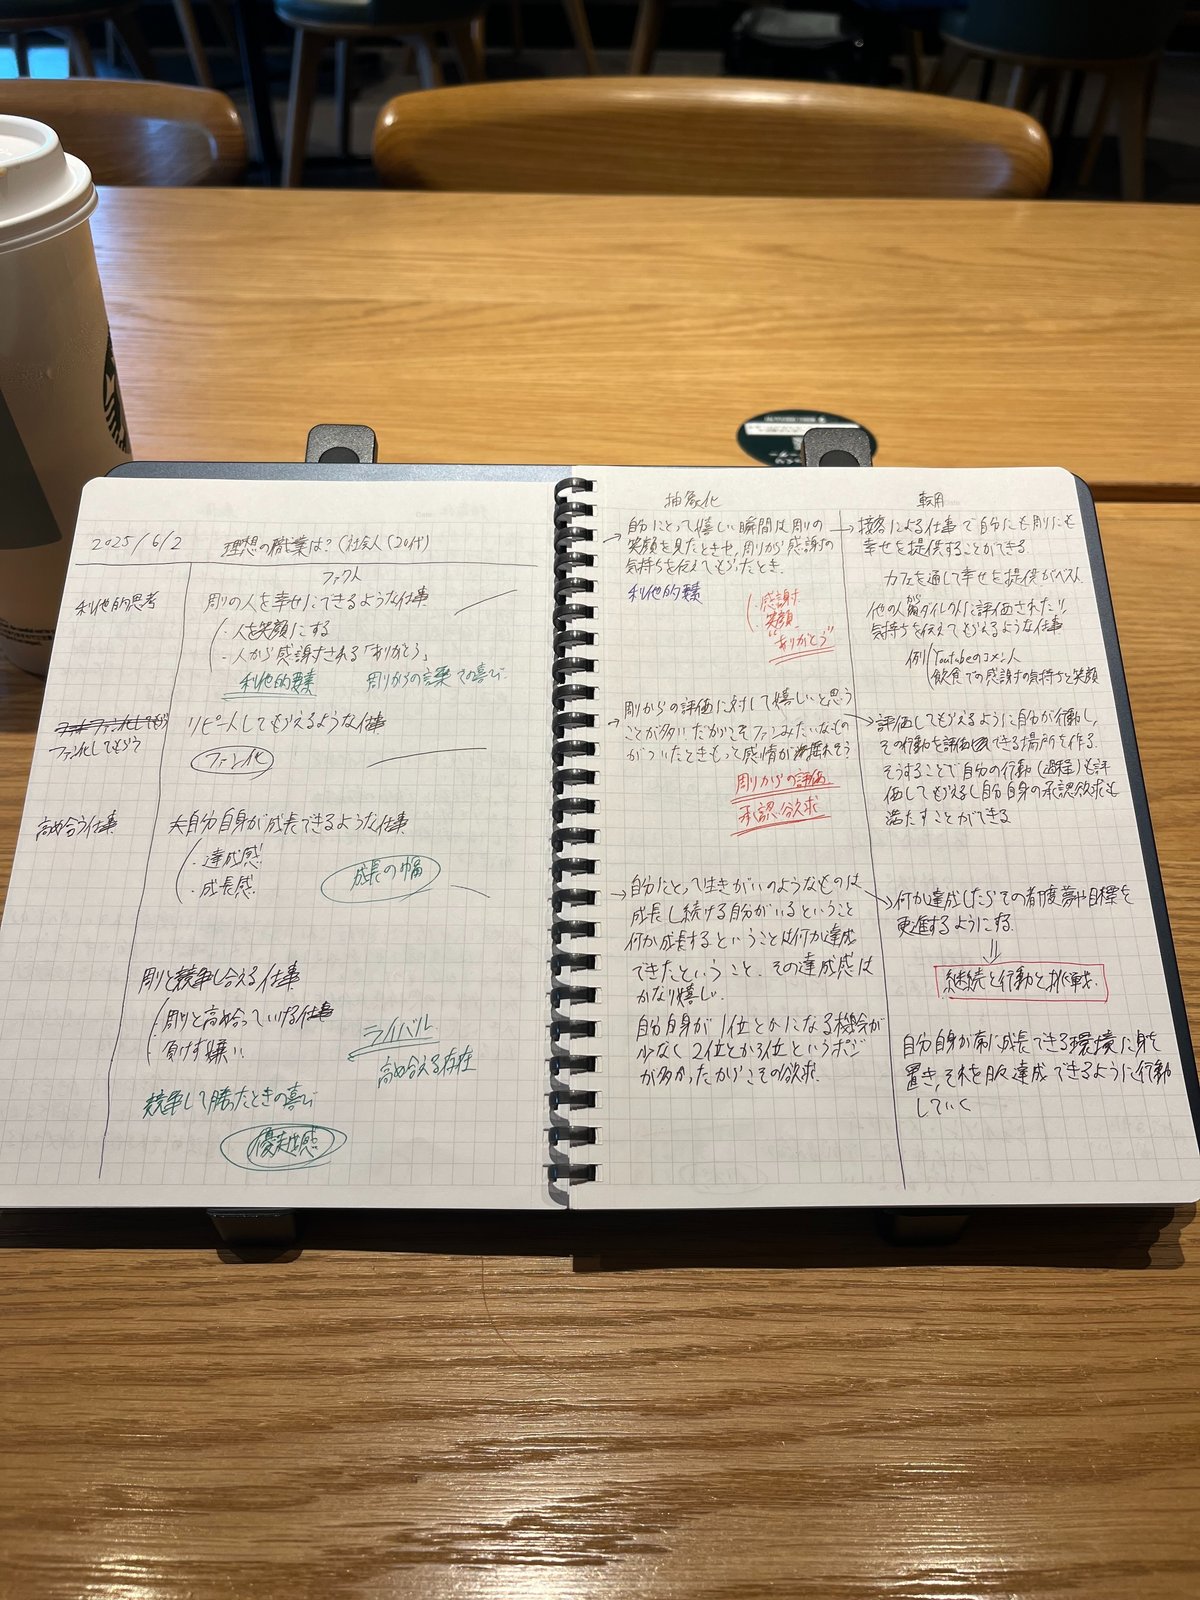 2025/6/2
理想の職業は?(社会人(20代)
ファクト
利他的思考
周りの人を幸せにできるような仕事
・人を笑顔にする
・人から感謝される「ありがとう」
利他的要素
周りからの言葉での喜び
ファン化してもらう
リピートしてもらえるような仕事
ファン化
高め合う仕事
自分自身が成長できるような仕事
・達成感!
・成長感!
成長の幅
周りと競争し合える仕事
・周りと高め合っていける仕事
・負けず嫌い
ライバル
高め合える存在
競争して勝ったときの喜び
優越感
抽象化
自分にとって嬉しい瞬間は周りの
笑顔を見たときや、周りから感謝の
気持ちを伝えてもらったとき.
利他的要素
・感謝
・笑顔
"ありがとう"
周りからの評価に対して嬉しいと思う
ことが多い。だからこそファンみたいなもの
がついたときもって感情が揺れそう?
周りからの評価
承認欲求
自分にとって生きがいのようなものは
成長し続ける自分がいるということ
何か成長するということは何か達成
できたということ.その達成感は
かなり嬉しい.
自分自身が1位とかになる機会が
少なく2位とか3位というポジ
が多かったからこその欲求.
転用
接客による仕事で自分にも周りにも
幸せを提供することができる.
カフェを通して幸せを提供がベスト
他の人からダイレクトに評価されたり!
気持ちを伝えてもらえるような仕事
例 Youtubeのコメント
飲食での感謝の気持ちと笑顔
評価してもらえるように自分が行動し,
その行動を評価できる場所を作る.
そうすることで自分の行動(過程)も評
価してもらえるし自分自身の承認欲求も
満たすことができる.
何か達成したらその都度夢や目標を
更進するようにする.
継続と行動と挑戦.
自分自身が常に成長できる環境に身を
置き,それを反達成できるように行動
していく